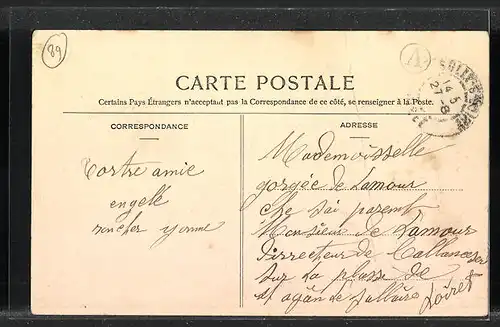 89
A
14 5
27 - 8
CARTE POSTALE
Certains Pays Étrangers n'acceptant pas la Correspondance de ce côté, se renseigner à la Poste.
CORRESPONDANCE
ADRESSE
Vortre amie
engelle
roncher yonne
Mademoisselle
gorgée de Lamour
che sai parent
Monsieur de Lamour
Dirrecteur de
sur la plasse de
st agan de sullaire
Loiret